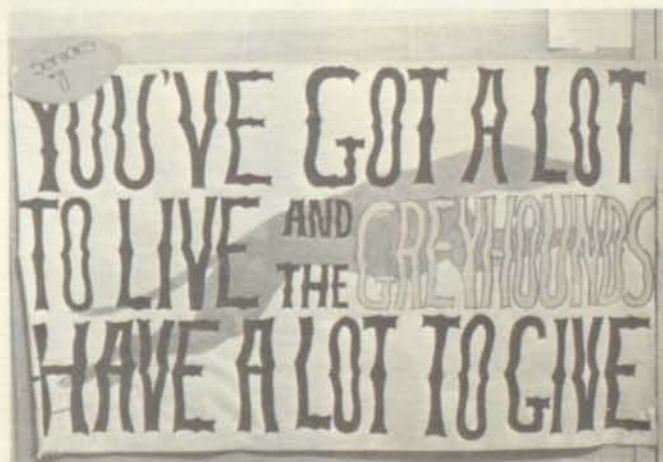 YOU'VE GOT A LOT
TO LIVE AND THE GREYHOUNDS
HAVE A LOT TO GIVE